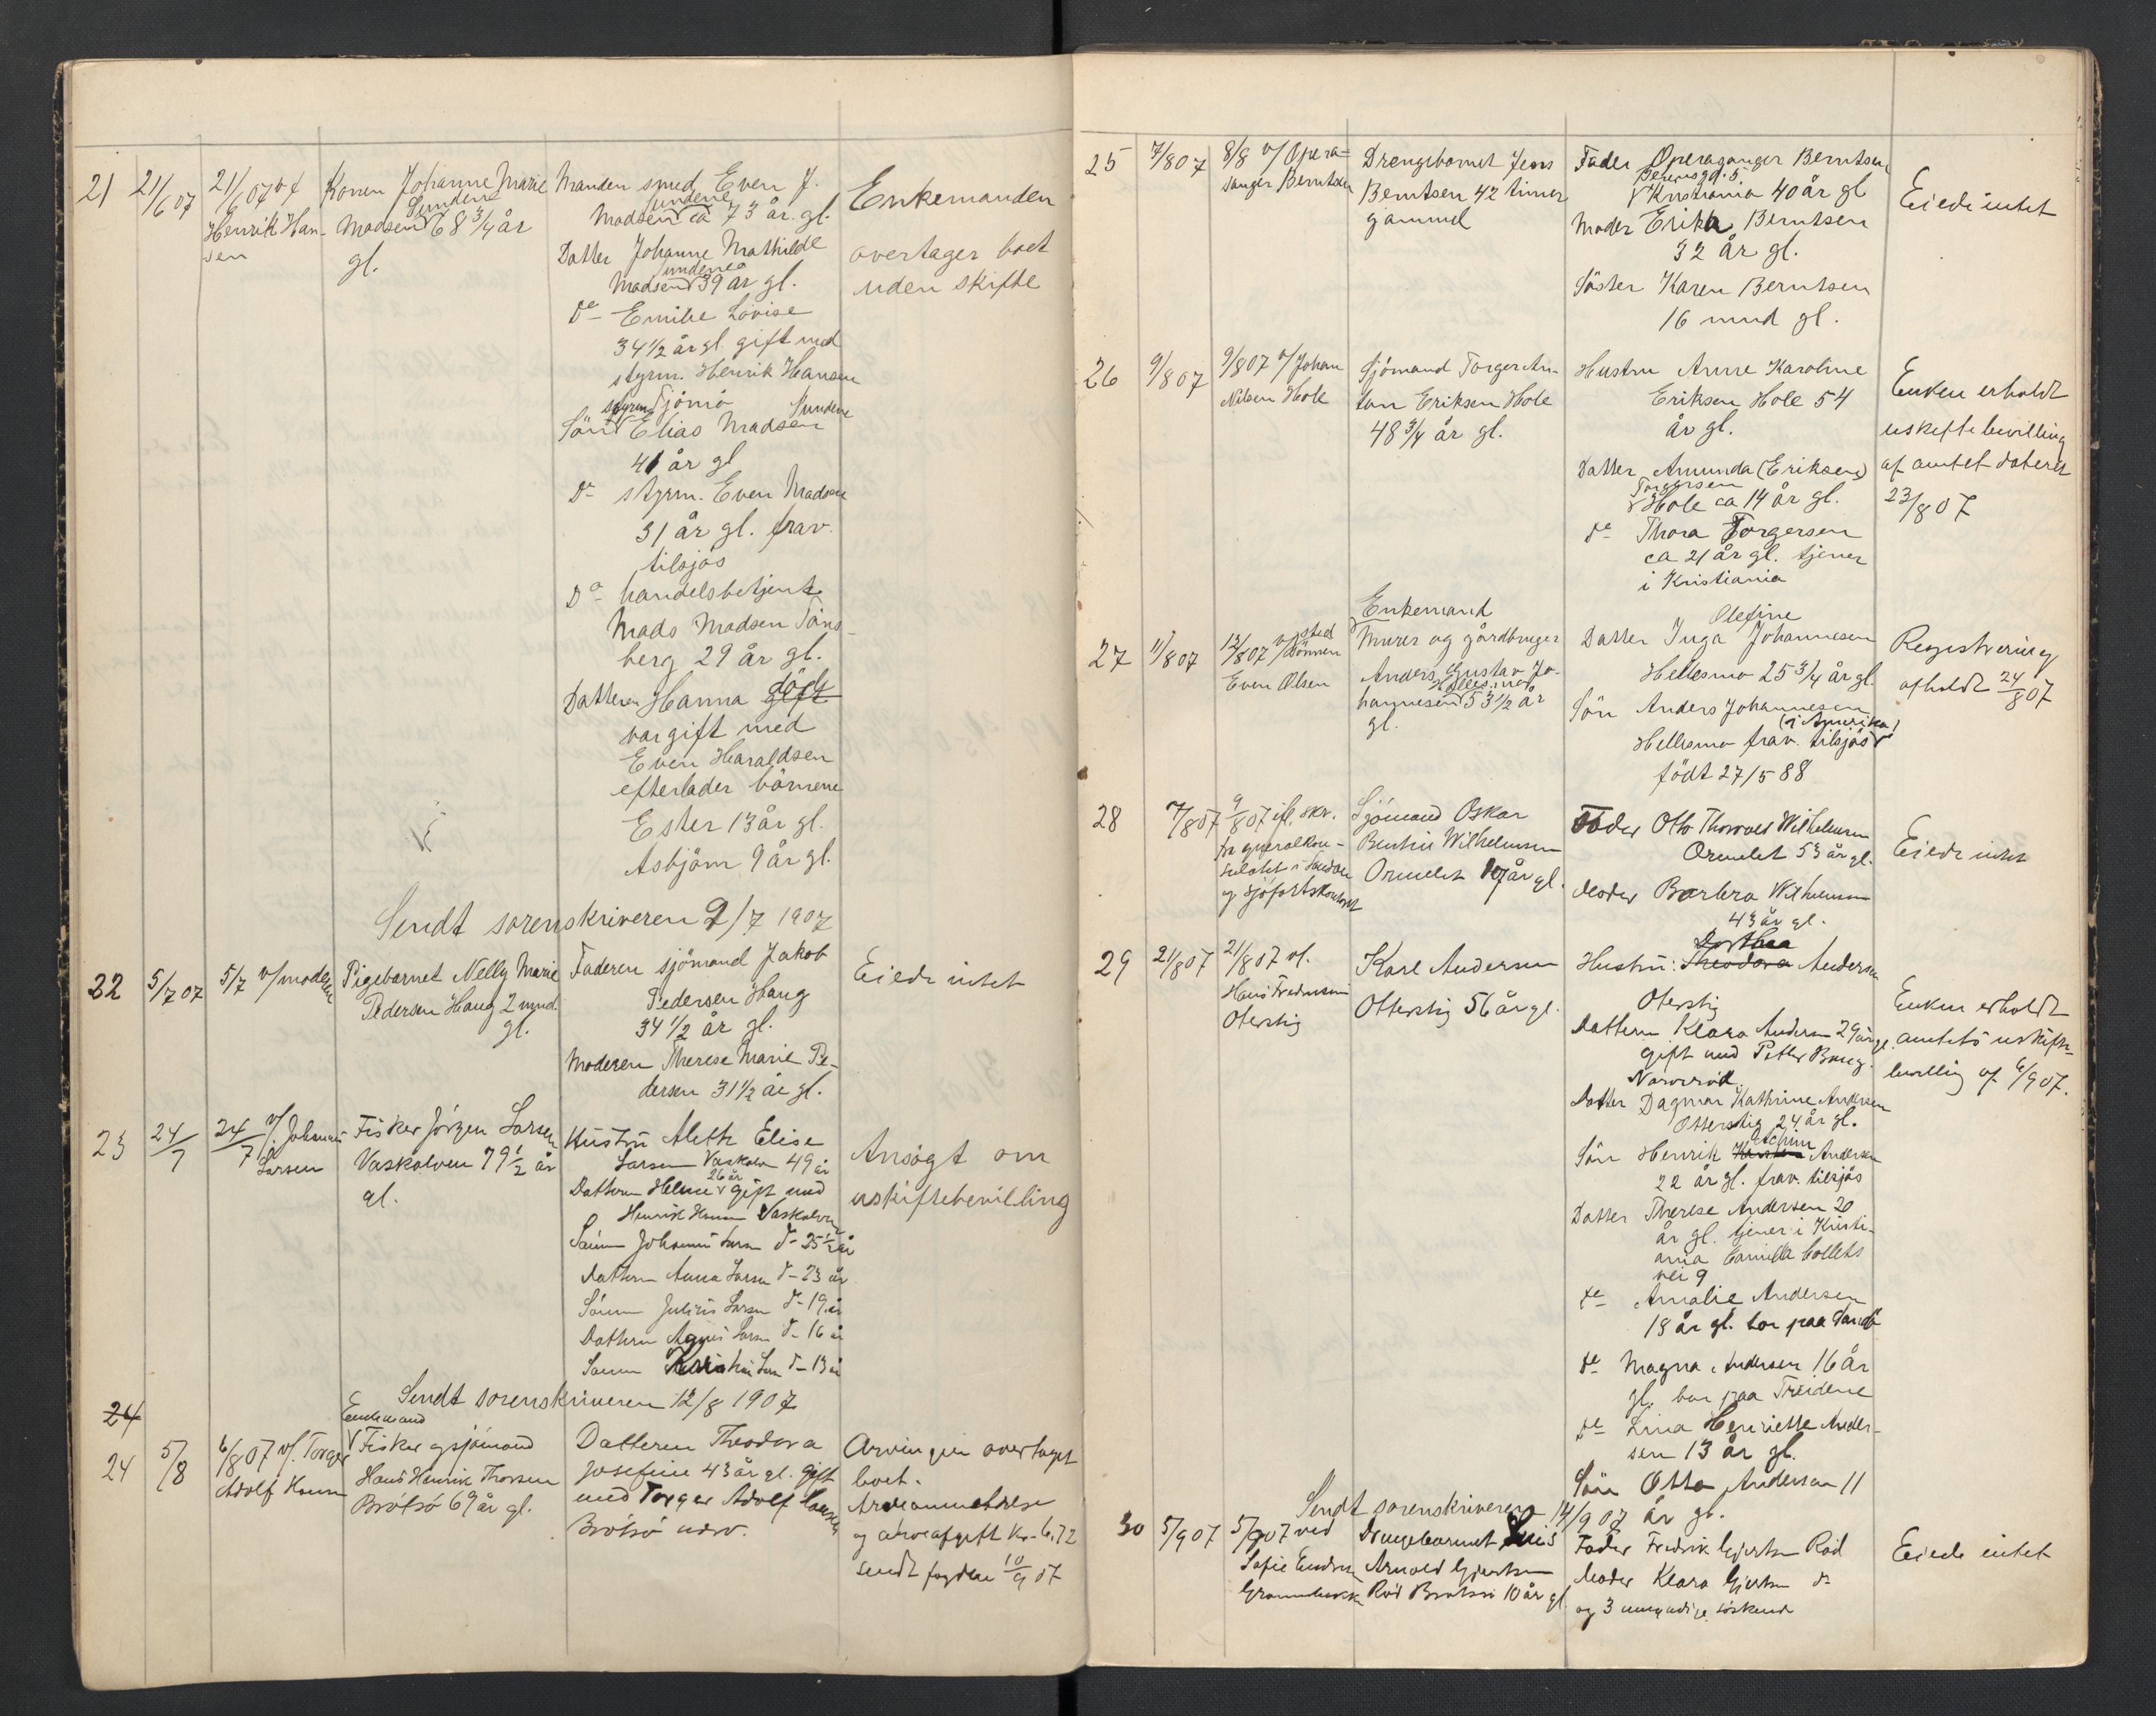 21 21/6 07 21/6 07 v/ Henrik Hansen
Konen Johanne Marie
Madsen Sundene 68 3/4 år
gl.
Manden smed Even J.
Madsen Sundene ca 73 år. gl.
Datter Johanne Mathilde
Madsen Sundene 39 år gl.
Do Emilie Lovise
34 1/2 år gl. gift med
styrm. Henrik Hansen
Tjömö
Sön styrm. Elias Madsen Sundene
41 år gl
Do styrm. Even Madsen
31 år gl. frav.
tilsjös
Do handelsbetjent
Mads Madsen Töns-
berg 29 år gl.
Datteren Hanna död
var gift med
Even Haraldsen
efterlader börnene
Ester 13 år gl.
Asbjörn 9 år gl.
Enkemanden
overtager boet
uden skifte
Sendt sorenskriveren 2/7 1907
22 5/7 07 5/7 v/ moderen
Pigebarnet Nelly Marie
Pedersen Haug 2 mnd.
gl.
Faderen sjömand Jakob
Pedersen Haug
34 1/2 år gl.
Moderen Therese Marie Pe-
dersen 31 1/2 år gl.
Eiede intet
23 24/7 24/7 v/ Johannes
Larsen
Fisker Jörgen Larsen
Vaskalven 79 1/2 år
gl.
Hustru Aleth Elise
Larsen Vaskalv 49 år
Datteren Helene 26 år gift med
Henrik Hansen Vaskalven
Sönnen Johannes Larsen do 25 1/2 år
Datteren Anna Larsen do 23 år
Sönnen Julius Larsen do 19 år
Datteren Agnes Larsen do 16 år
Sönnen Larsen do 13 år
Ansögt om
uskiftebevilling
Sendt sorenskriveren 12/8 1907
24
24 5/8 6/8 07 v/ Torger
Adolf Hansen
Enkemand
Fisker og sjömand
Hans Henrik Thorsen
Brötsö 69 år gl.
Datteren Theodora
Josefine 43 år gl. gift
med Torger Adolf Hansen
Brötsö
Arvingen overtaget
boet.
Arveanmeldelse
og arveafgift Kr. 6,72
sendt fogden 10/9 07
25 7/8 07 8/8 v/ Opera-
sanger Berntsen
Drengebarnet Jens
Berntsen 42 timer
gammel
Fader Operasanger Berntsen
Kristiania 40 år gl
Moder Erika Berntsen
32 år gl.
Söster Karen Berntsen
16 mnd gl.
Eiede intet
26 9/8 07 9/8 07 v/ Johan
Nilsen Hole
Sjömand Torger An-
ton Eriksen Hole
48 3/4 år gl.
Hustru Anne Karoline
Eriksen Hole 54
år gl.
Datter Amunda (Eriksen)
Torgersen
Hole ca 14 år gl.
do Thora Torgersen
ca 21 år gl. tjener
i Kristiania
Enken erholdt
uskiftebevilling
af amtet dateret
23/8 07
27 11/8 07 12/8 07 v/ stedsönnen
Even Olsen
Enkemand
Murer og gårdbruger
Anders Gustav Jo-
hannesen Hellesmo 53 1/2 år
gl.
Datter Inga Olefine Johannesen
Hellesmo 25 3/4 år gl.
Sön Anders Johannesen
Hellesmo frav. tilsjös (i Amerika)
födt 27/5 88
Registrering
afholdt 24/8 07
28 7/8 07 9/8 07 ifl. skr.
fra generalkon-
sulatet i London
og sjöfartskontoret
Sjömand Oskar
Wilhelmsen
Ormelet år gl.
Fader Otto Thorvald Wilhelmsen
Ormelet 53 år gl.
Moder Barbra Wilhelmsen
43 år gl.
Eiede intet
29 21/8 07 21/8 07 v/
Hans Fredriksen
Oterstig
Karl Andersen
Otterstig 56 år gl.
Hustru: Theodora Dorthea Andersen
Oterstig
Datteren Klara Andersen 29 år gl.
gift med Petter Berg
Narverød
Datter Dagmar Kathrine Andersen
Otterstig 24 år gl.
Sön Henrik Andersen
22 år gl. frav. tilsjös
Datter Therese Andersen 20
år gl. tjener i Kristi-
ania Camilla Colletts
vei 9
do Amalie Andersen
18 år gl. bor paa Sandö
do Magna Andersen 16 år
gl. bor paa Treidene
do Lina Henriette Ander-
sen 13 år gl.
Sön Otto Andersen 11
år gl.
Enken erholdt
amtets uskifte-
bevilling af 6/9 07.
Sendt sorenskriveren 14/9 07
30 5/9 07 5/9 07 ved
Sofie
Drengebarnet
Arnold Gjertsen
Röd Brötsö 10 år gl
Fader Fredrik Gjertsen Röd
Moder Klara Gjertsen do
og 3 umyndige söskend
Eiede intet